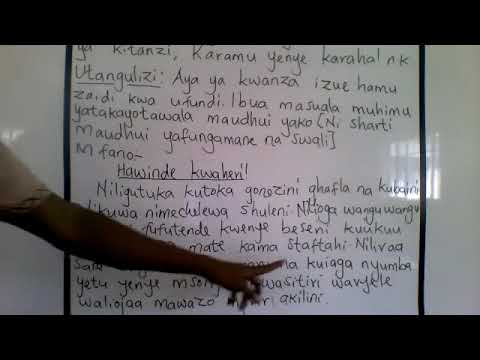 ya kitanzi, Karamu yenye karaha! nk
Utangulizi: Aya ya kwanza izue hamu
zaidi kwa ufundi. Ibua masuala muhimu
yatakayotawala maudhui yako [Ni sharti
maudhui yafungamane na swali]
Mfano-
Hawinde kwaheri!
Niligutuka kutoka gonezini ghafla na kubaini
nimechelewa shuleni. Nilioga wangu wangu
fufutende kwenye beseni kuukuu
mate kama staftahi. Nilivaa
na kuiaga nyumba
yetu yenye wasitiri wavyele
waliojaa mawazo akilini.